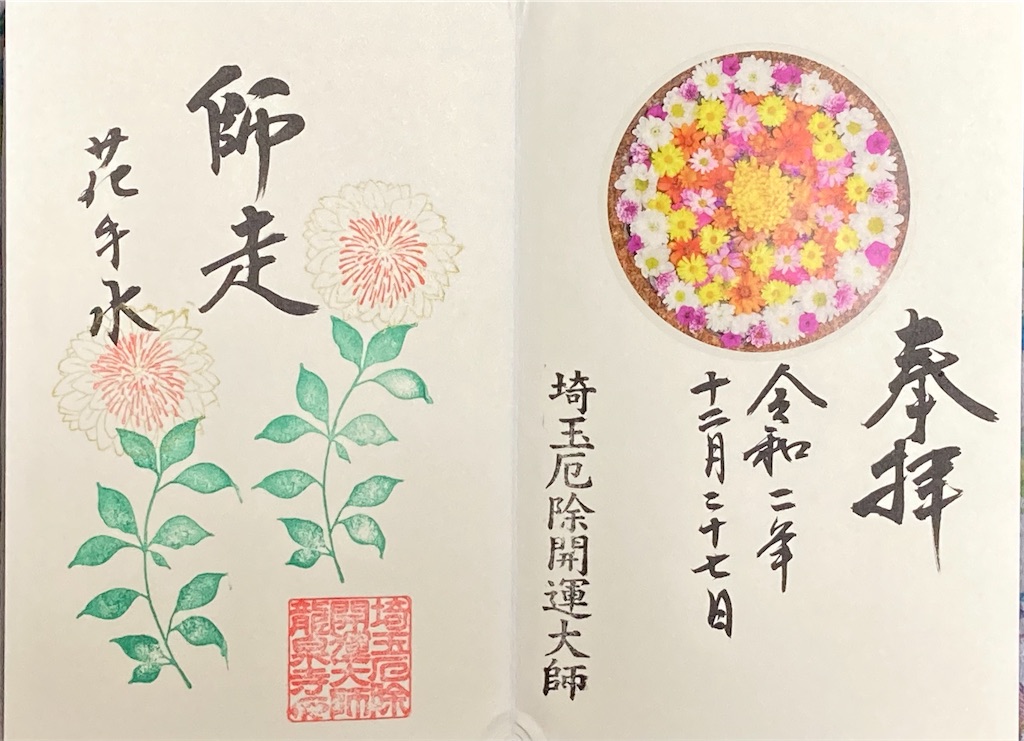 奉拝
令和二年
十二月二十七日
埼玉厄除開運大師
師走
花手水
埼玉厄除
開運大師
龍泉寺印